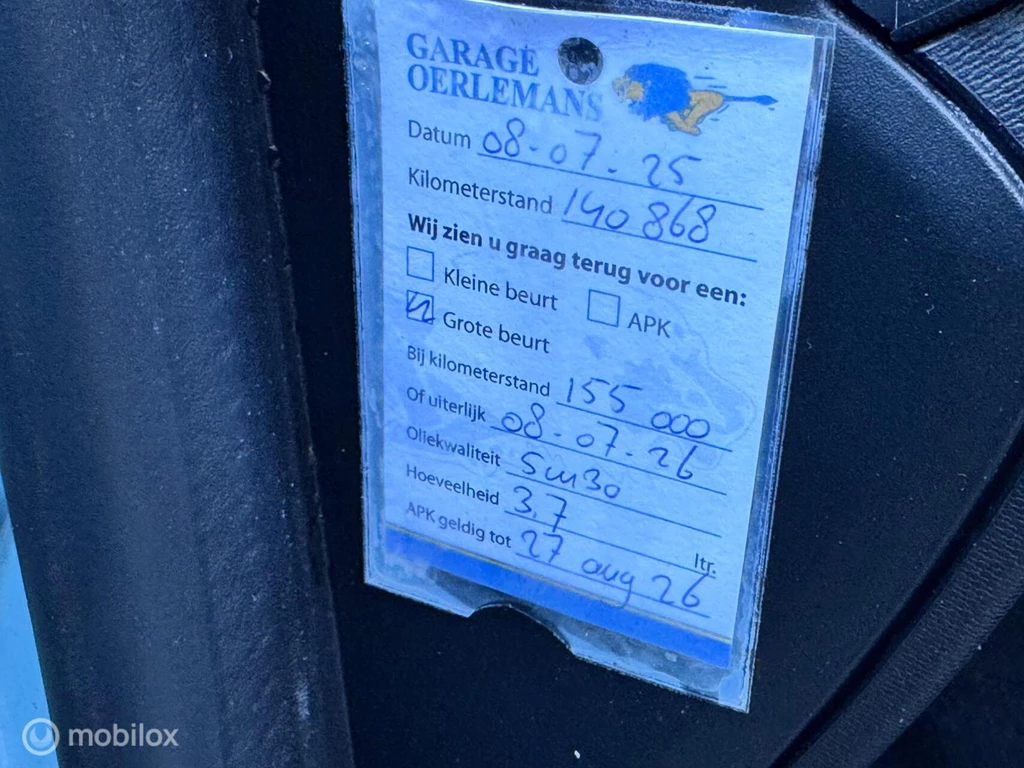 GARAGE
OERLEMANS
Datum 08-07-25
Kilometerstand 140 868
Wij zien u graag terug voor een:
Kleine beurt APK
Grote beurt
Bij kilometerstand 155 000
Of uiterlijk 08-07-26
Oliekwaliteit 5w30
Hoeveelheid 3,7 ltr.
APK geldig tot 27 aug 26
mobilox